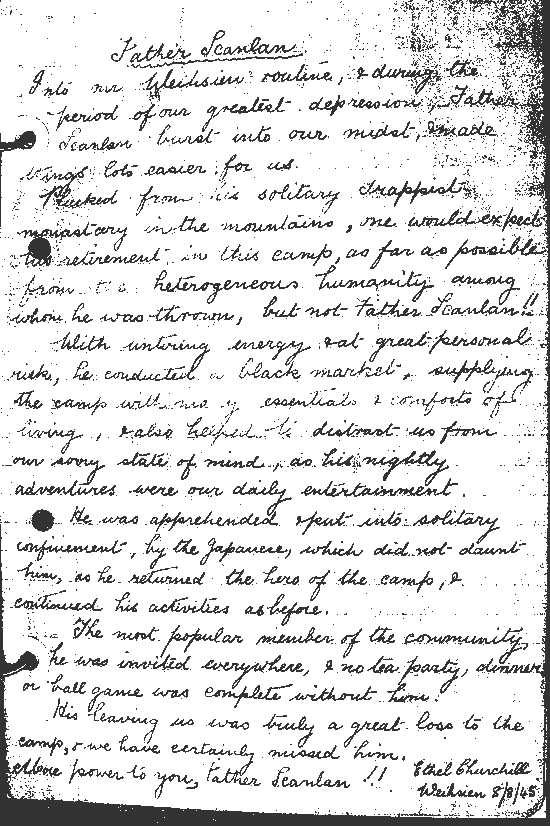 Father Scanlan.
Into our Weihsien routine, & during the
period of our greatest depression, Father
Scanlan burst into our midst, & made
things lots easier for us.
Plucked from his solitary Trappist
monastary in the mountains, one would expect
his retirement in this camp, as far as possible
from the heterogeneous humanity among
whom he was thrown, but not Father Scanlan!!
With untiring energy & at great personal
risk, he conducted a black market, supplying
the camp with many essentials & comforts of
living, & also helped to distract us from
our sorry state of mind, as his nightly
adventures were our daily entertainment.
He was apprehended & put into solitary
confinement, by the Japanese, which did not daunt
him, as he returned the hero of the camp, &
continued his activities as before.
The most popular member of the community,
he was invited everywhere, & no tea party, dinner
or ball game was complete without him.
His leaving us was truly a great loss to the
camp, & we have certainly missed him.
More power to you, Father Scanlan !!
Ethel Churchill
Weihsien 8/8/45